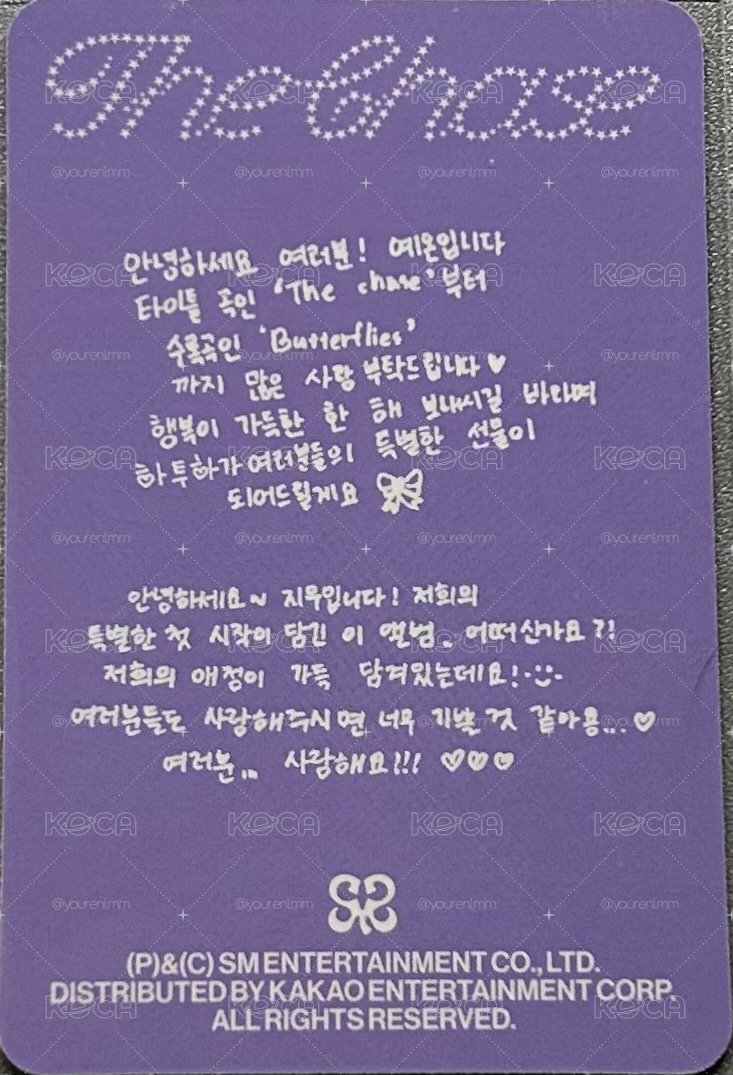 The Chase
안녕하세요 여러분! 예온입니다
타이틀 곡인 'The chase'부터
수록곡인 'Butterflies'
까지 많은 사랑 부탁드립니다♥
행복이 가득한 한 해 보내시길 바라며
하투하가 여러분들의 특별한 선물이
되어드릴게요
안녕하세요~ 지우입니다! 저희의
특별한 첫 시작이 담긴 이 앨범.. 어떠신가요?!
저희의 애정이 가득 담겨있는데요!
여러분들도 사랑해주시면 너무 기쁠 것 같아용...♡
여러분... 사랑해요!!! ♡♡♡
(P)&(C) SM ENTERTAINMENT CO., LTD.
DISTRIBUTED BY KAKAO ENTERTAINMENT CORP.
ALL RIGHTS RESERVED.
KOCA
@yourenlmm